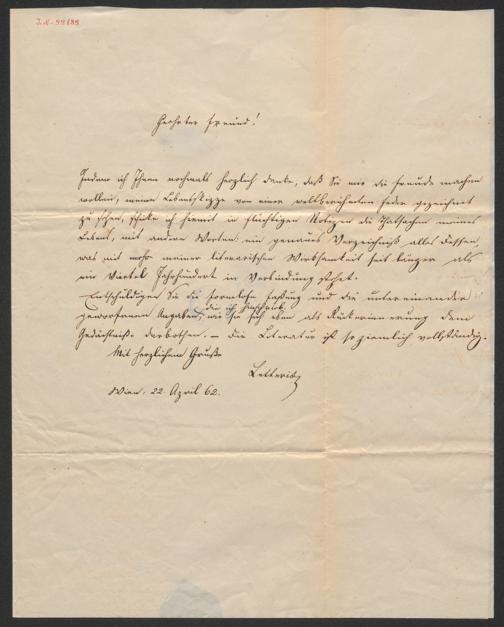 I.N. 99189
Geehrter Freund!
Indem ich Ihnen nochmals herzlich danke, daß Sie mir die Freude machen
wollen, meine Lebensskizze von einer vollberühmten Feder gezeichnet
zu sehen, schicke ich hiemit in flüchtigen Notizen die Thatsachen meines
Lebens, mit andern Worten ein genaues Verzeichniß alles dessen,
was mit meiner literarischen Wirksamkeit seit länger als
ein Viertel Jahrhundert in Verbindung steht.
Entschuldigen Sie die formlose Fassung und die untereinander
geworfenen Angaben, die ich hinschrieb
wie sie sich eben als Rückerinnerung dem
Gedächtniße darbothen. — die Literatur ist so ziemlich vollständig.
Mit herzlichem Gruße
Letteris
Wien. 22. April 62.